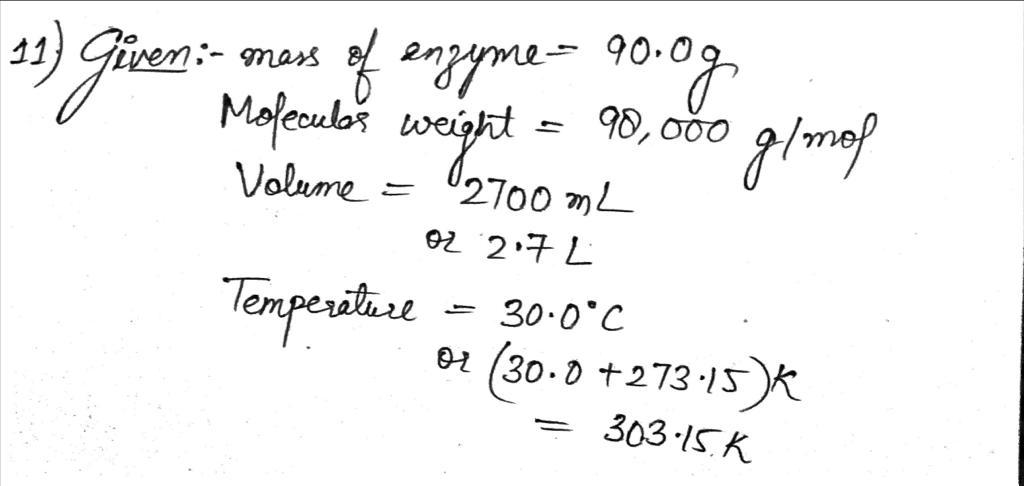 11) Given:- mass of enzyme = 90.0g
Molecular weight = 98,000 g/mol
Volume = 2700 mL
or 2.7 L
Temperature = 30.0°C
or (30.0 +273.15)K
= 303.15 K